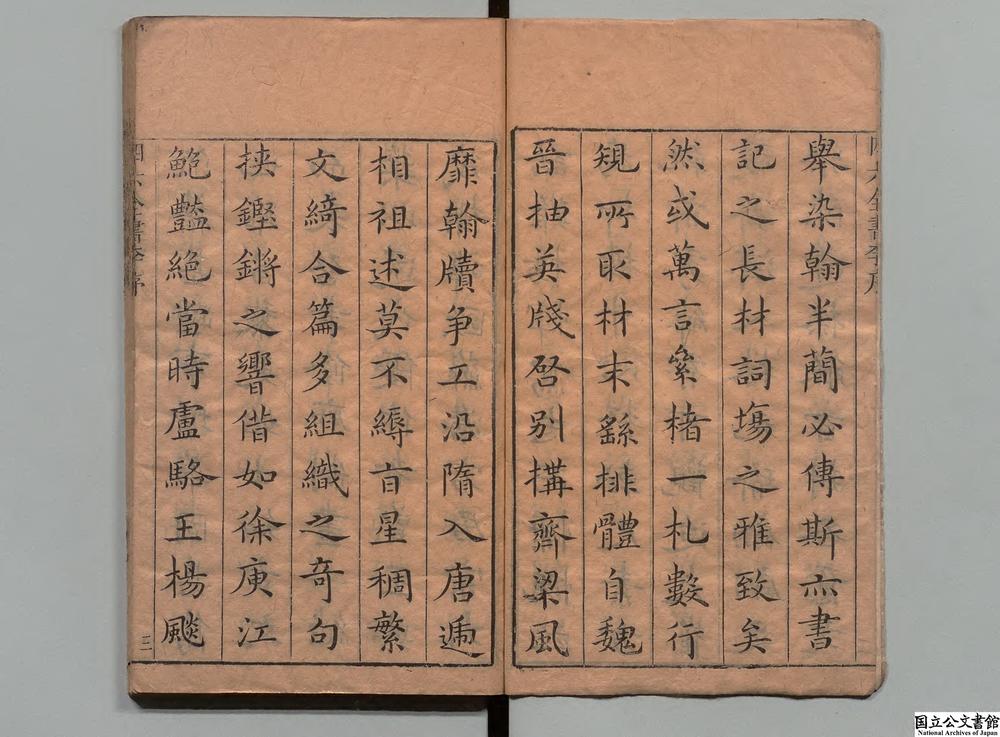 舉染翰半簡必傳斯亦書
記之長材詞塲之雅致矣
然或萬言絫楮一札數行
䂓所取材末繇排體自魏
晉抽英牋啓别搆齊梁風
靡翰牘争工沿隋入唐遞
相祖述莫不縟旨星稠繁
文綺合篇多組織之奇句
挟鏗鏘之響偕如徐庾江
鮑豔絶當時盧駱王楊飈
四六全書李序
三
国立公文書館
National Archives of Japan